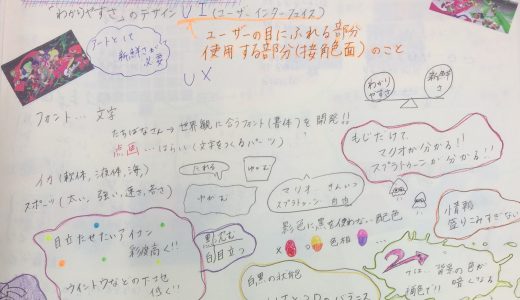 「わかりやすさ」のデザイン UI (ユーザーインターフェイス)
ユーザーの目にふれる部分
使用する部分(接角面)のこと
アートとして
新鮮さが
必要
UX
わかり
やすさ
新鮮
さ
フォント… 文字
たちばなさん→世界観に合うフォント(書体)を開発!!
点画…はらい(文字をつくるパーツ)
もじだけで
マリオが分かる!!
スプラトゥーンが分かる!!
イカ(軟体,液体,海)
たれる
ゆがむ
スポーツ(太い,強い,速さ,若さ)
マリオ
スプラトゥーン 自由
情報
盛りこみすぎない
彩色に黒を使わない配色
色相
目立たせたいアイコン
彩度高く!!
自目立つ
ウイントウなどの下地
低く!!
白黒の状態
2
では、背景の色が
暗くなる
のバランス